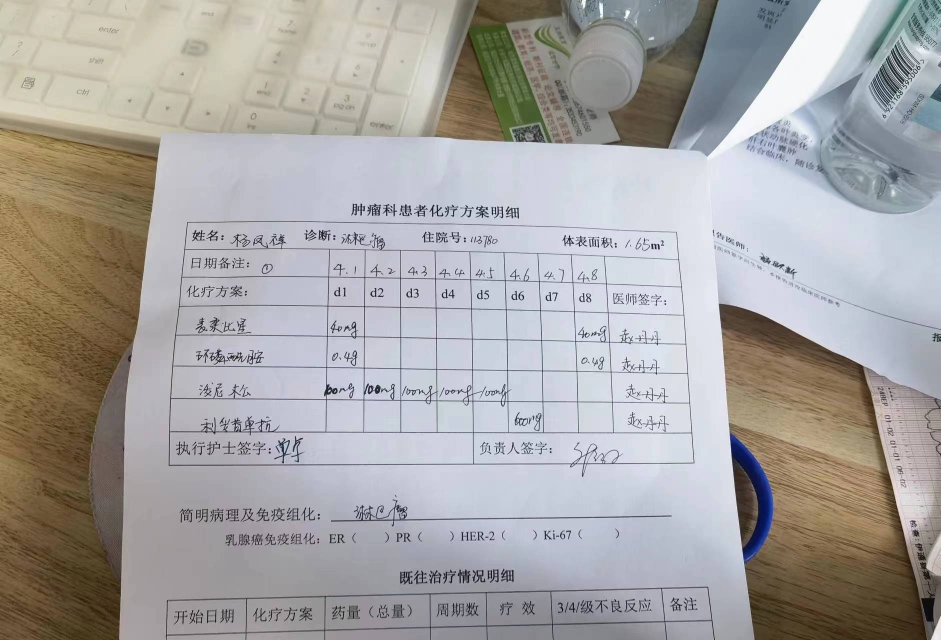 enter
shift
ctrl
end
7
home
pgup
1
end
2
3
log on
0
ins
enter
6 921168 593006
状动脉硬化
肝右叶囊肿
结合临床，随诊复
报告医师：
肿瘤科患者化疗方案明细
姓名：杨凤祥 诊断：淋巴瘤 住院号：113780 体表面积：1.65m²
日期备注：① 4.1 4.2 4.3 4.4 4.5 4.6 4.7 4.8
化疗方案： d1 d2 d3 d4 d5 d6 d7 d8 医师签字：
表柔比星 40mg 40mg 赵丹丹
环磷酰胺 0.4g 0.4g 赵丹丹
泼尼松 100mg 100mg 100mg 100mg 100mg 赵丹丹
利妥昔单抗 600mg 赵丹丹
执行护士签字： 负责人签字：
简明病理及免疫组化： 淋巴瘤
乳腺癌免疫组化：ER（ ）PR（ ）HER-2（ ）Ki-67（ ）
既往治疗情况明细
开始日期 化疗方案 药量（总量） 周期数 疗 效 3/4/级不良反应 备注